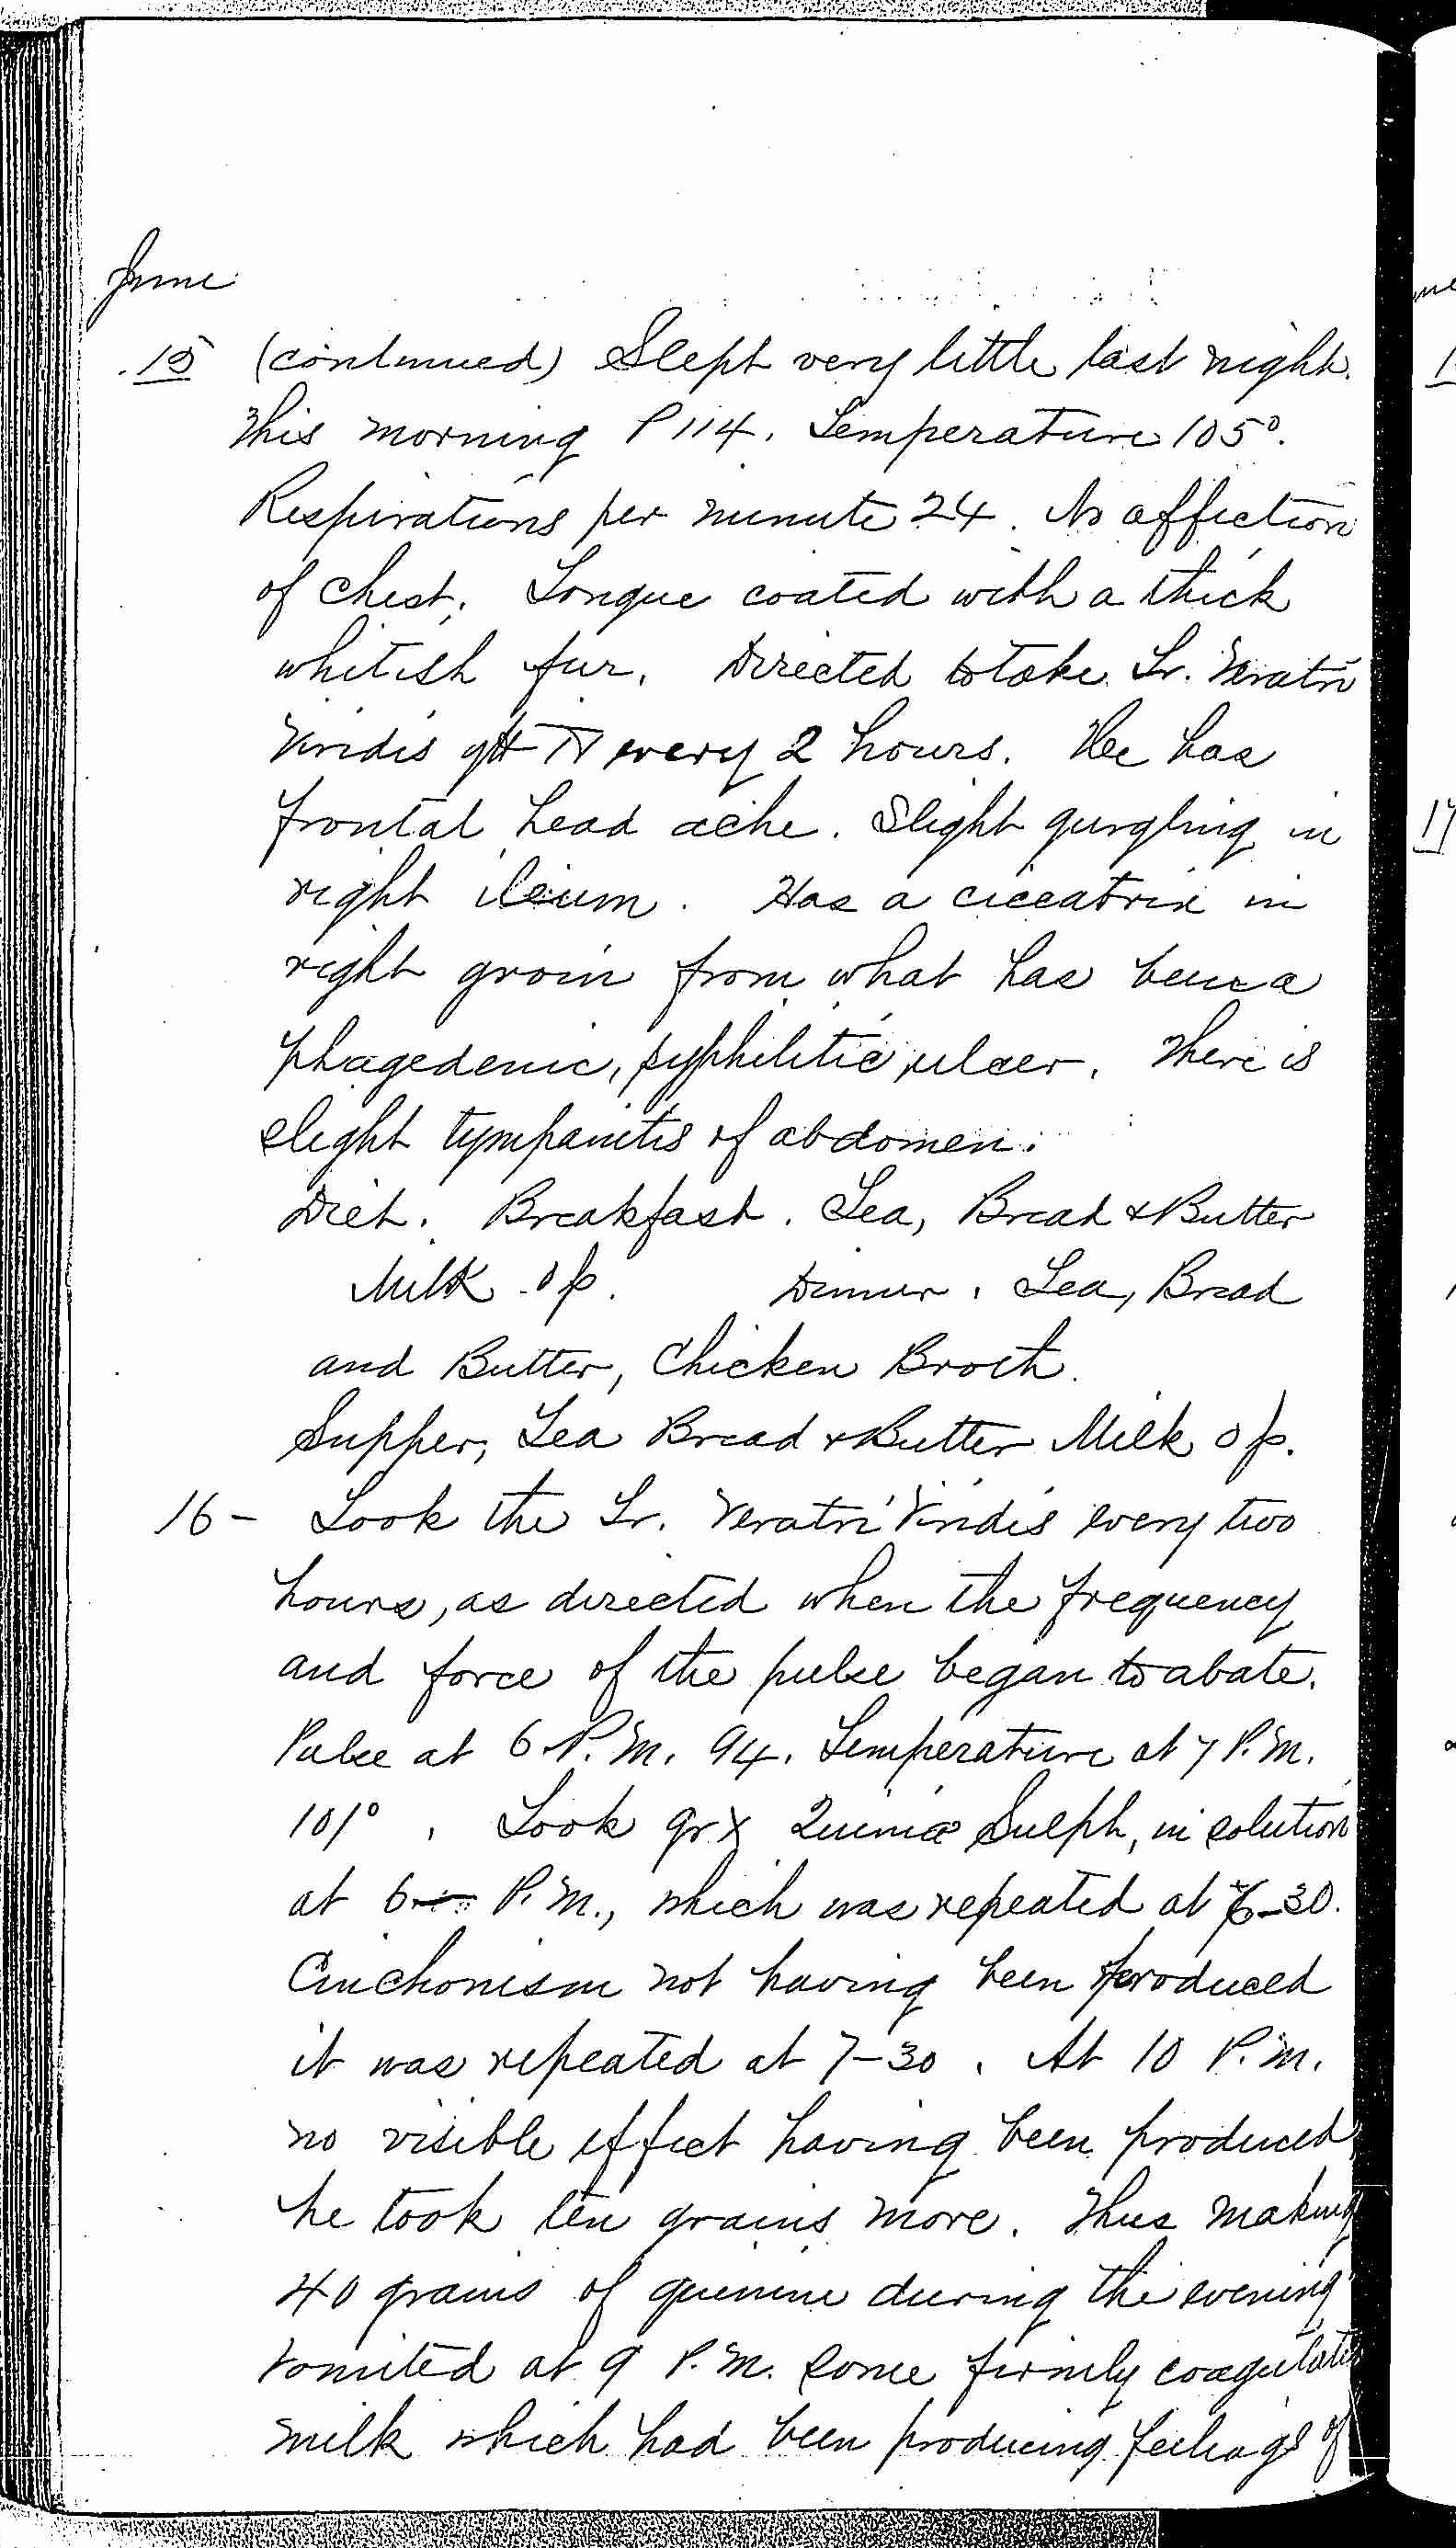 June
15 (continued) Slept very little last night.
This morning P 114. Temperature 105°.
Respirations per minute 24. No affection
of chest. Tongue coated with a thick
whitish fur. Directed to take Tr. Veratri
Viridis gtt IV every 2 hours. He has
frontal head ache. Slight gurgling in
right ileum. Has a ciccatrix in
right groin from what has been a
phagedenic, syphilitic, ulcer. There is
slight tympanitis of abdomen.
Diet. Breakfast. Tea, Bread & Butter
Milk Op. Dinner. Tea, Bread
and Butter, Chicken Broth.
Supper, Tea Bread & Butter Milk Op.
16 - Took the Tr. Veratri Viridis every two
hours, as directed when the frequency
and force of the pulse began to abate.
Pulse at 6 P.M. 94. Temperature at 7 P.M.
101°. Took gr X Quiniæ Sulph, in solution
at 6 P.M., which was repeated at 6-30.
Cinchonism not having been produced
it was repeated at 7-30. At 10 P.M.
no visible effect having been produced
he took ten grains more. Thus making
40 grains of quinine during the evening
Vomited at 9 P.M. some firmly coagulated
milk which had been producing feelings of
17